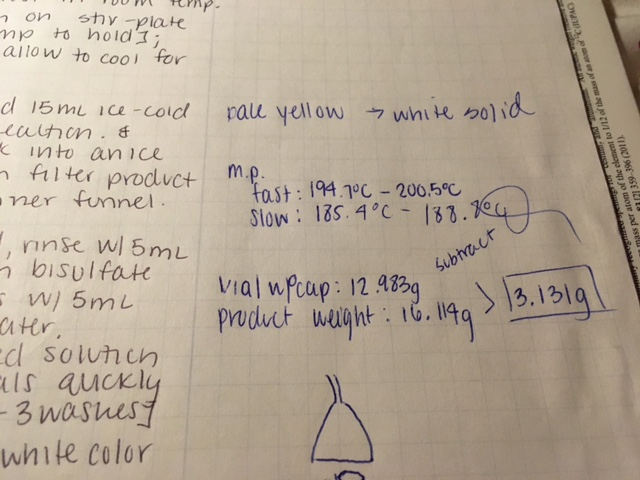 room temp.
n on stir-plate
mp to hold];
allow to cool for
d 15mL ice-cold
eaction. &
k into an ice
n filter product
ner funnel.
, rinse w/ 5mL
n bisulfate
s w/ 5mL
ater.
ed solution
als quickly
- 3 washes]
white color
pale yellow → white solid
m.p.
fast: 194.7°C - 200.5°C
slow: 185.4°C - 188.8°C
subtract
vial w/cap: 12.983g
product weight: 16.114g > 3.131g
mass per atom of the element to 1/12 of the mass of an atom of ¹²C (IUPAC)
159-396 (2011).